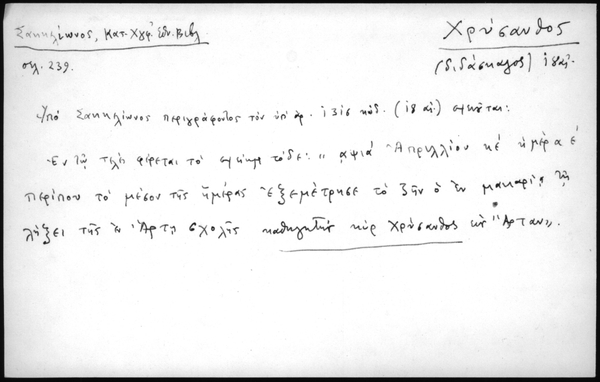 Σακκελίωνος, Κατ. Χγφ. Εθν. Βιβλ
Χρύσανθος
σελ. 239.
(διδάσκαλος) ιη αἰ.
Ὑπό Σακκελίωνος περιγράφοντος τον ὑπ' ἀρ. 1315 κώδ. (ιη αἰ.) σημειοῦται:
Ἐν τῷ τέλει φέρεται το σημείωμα τόδε: "αψιά Ἀπριλλίου κέ ἡμέρα ε
περίπου το μέσον τῆς ἡμέρας ἐξεμέτρησε το ζῆν ὁ ἐν μακαρίᾳ τῇ
λήξει τῆς ἐν Ἄρτῃ σχολῆς καθηγητής κύρ Χρύσανθος εἰς Ἄρταν".